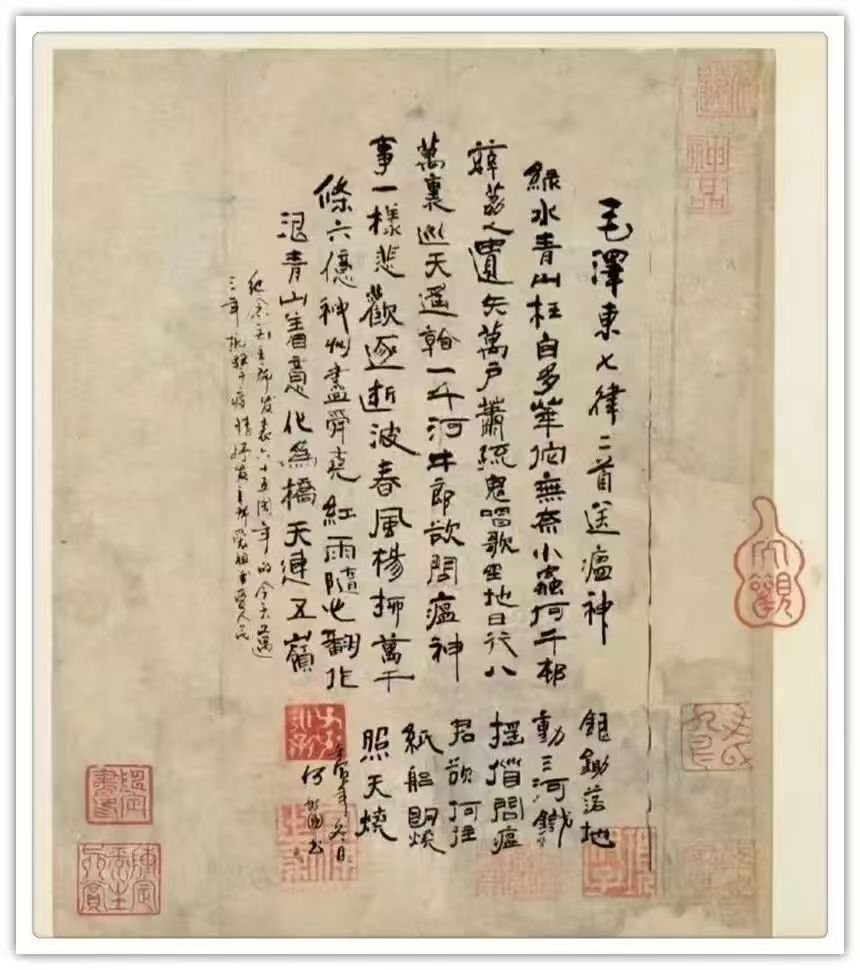 毛澤東七律二首送瘟神
綠水青山枉自多華佗無奈小蟲何千邨
薜荔人遺矢萬戶蕭疏鬼唱歌坐地日行八
萬裏巡天遙看一千河牛郎欲問瘟神
事一樣悲歡逐逝波春風楊柳萬千
條六億神州盡舜堯紅雨隨心翻作
浪青山着意化為橋天連五嶺
銀鋤落地
動三河鐵
搖問瘟
君欲何往
紙船明
照天燒
紀念毛主席发表六十五周年的今天
三年抗擊疫情
壬寅年冬日
何书